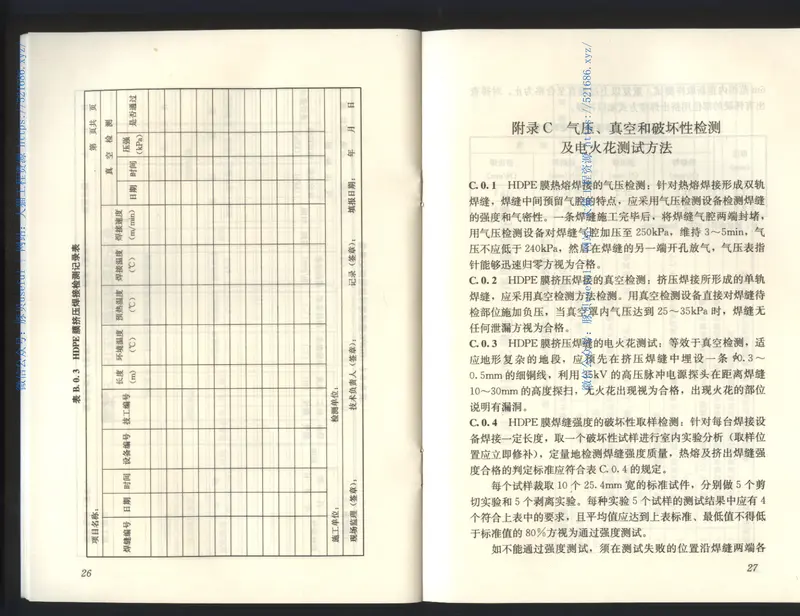 表 B.0.3 HDPE膜挤压焊接检测记录表
项目名称：
第 页共 页
焊缝编号
日期
时间
设备编号
技工编号
长度
(m)
环境温度
(℃)
预热温度
(℃)
焊接温度
(℃)
焊接速度
(m/min)
真 空 检 测
日期
时间
压强
(kPa)
是否通过
施工单位：
检测单位：
现场监理（签章）：
技术负责人（签章）：
记录（签章）：
填报日期： 年 月 日
26
附录 C 气压、真空和破坏性检测
及电火花测试方法
C.0.1 HDPE膜热熔焊接的气压检测：针对热熔焊接形成双轨
焊缝，焊缝中间预留气腔的特点，应采用气压检测设备检测焊缝
的强度和气密性。一条焊缝施工完毕后，将焊缝气腔两端封堵，
用气压检测设备对焊缝气腔加压至 250kPa，维持 3～5min，气
压不应低于 240kPa，然后在焊缝的另一端开孔放气，气压表指
针能够迅速归零方视为合格。
C.0.2 HDPE膜挤压焊接的真空检测：挤压焊接所形成的单轨
焊缝，应采用真空检测方法检测。用真空检测设备直接对焊缝待
检部位施加负压，当真空罩内气压达到 25～35kPa 时，焊缝无
任何泄漏方视为合格。
C.0.3 HDPE膜挤压焊缝的电火花测试：等效于真空检测，适
应地形复杂的地段，应预先在挤压焊缝中埋设一条 φ0.3～
0.5mm的细铜线，利用 35kV 的高压脉冲电源探头在距离焊缝
10～30mm 的高度探扫，无火花出现视为合格，出现火花的部位
说明有漏洞。
C.0.4 HDPE膜焊缝强度的破坏性取样检测：针对每台焊接设
备焊接一定长度，取一个破坏性试样进行室内实验分析（取样位
置应立即修补），定量地检测焊缝强度质量，热熔及挤出焊缝强
度合格的判定标准应符合表 C.0.4 的规定。
每个试样裁取 10 个 25.4mm 宽的标准试件，分别做 5 个剪
切实验和 5 个剥离实验。每种实验 5 个试样的测试结果中应有 4
个符合上表中的要求，且平均值应达到上表标准、最低值不得低
于标准值的 80%方视为通过强度测试。
如不能通过强度测试，须在测试失败的位置沿焊缝两端各
27